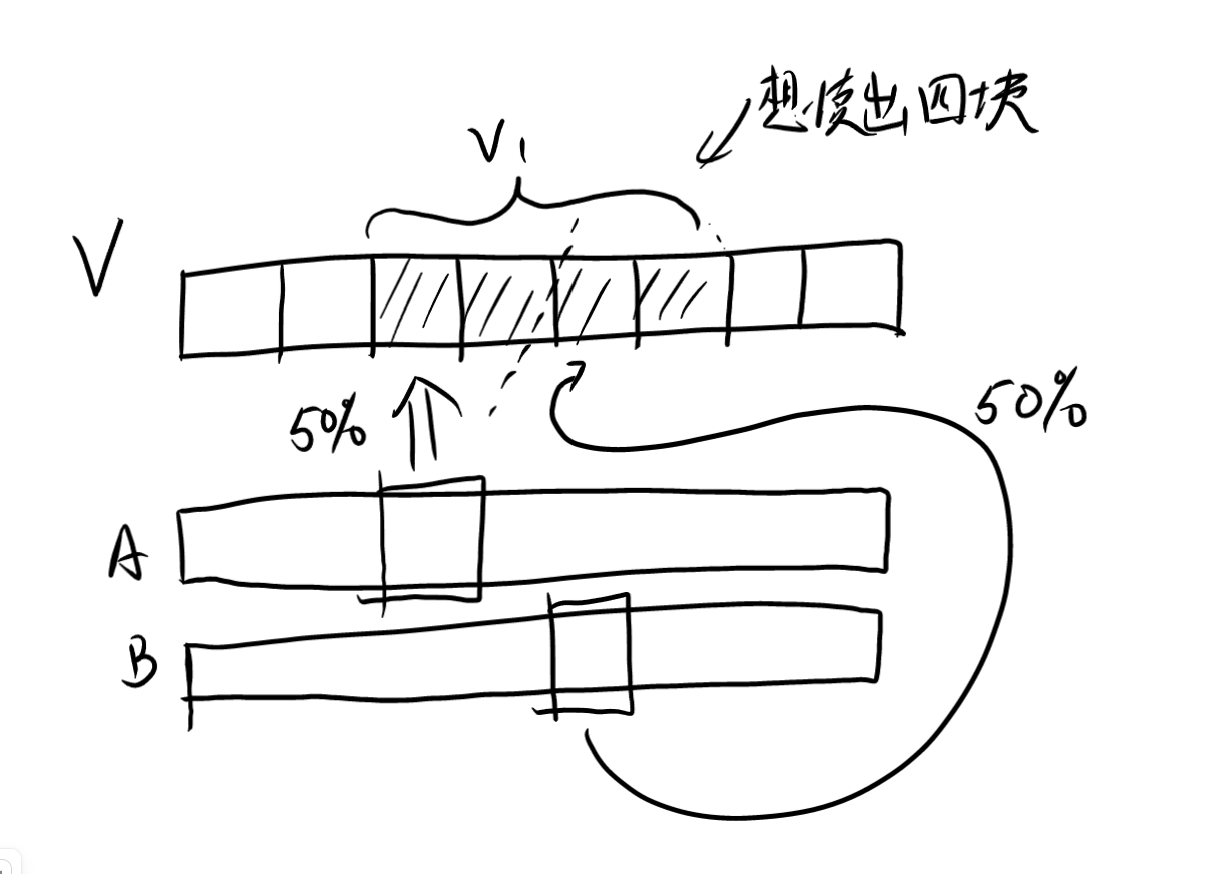 想读出四块
V1
V
50%
50%
A
B